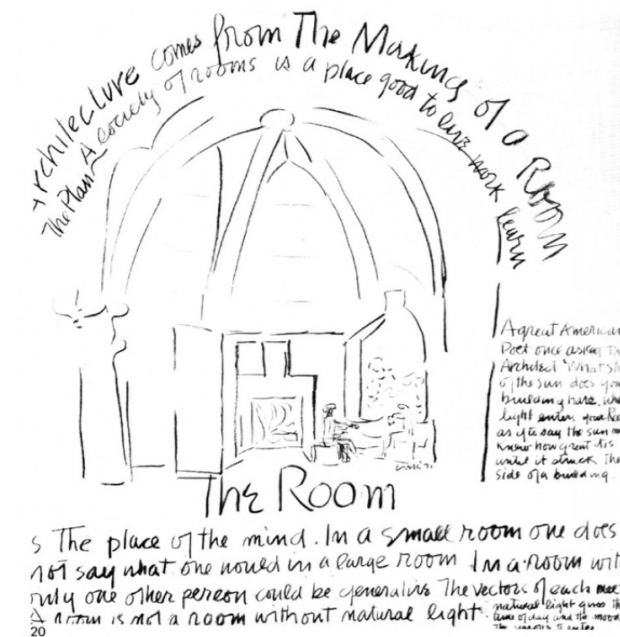 Architecture comes from The Making of a Room
The Plan – A society of rooms is a place good to live work learn
A great American
Poet once asked the
Architect 'What sl
of the sun does you
building have, wha
light enters your Roo
as if to say the sun n
knew how great it is
until it struck the
side of a building.
The Room
s The place of the mind. In a small room one does
not say what one would in a large room In a room wit
nly one other person could be generative The vectors of each mee
A room is not a room without natural light
natural light gives th
time of day and the mood
20